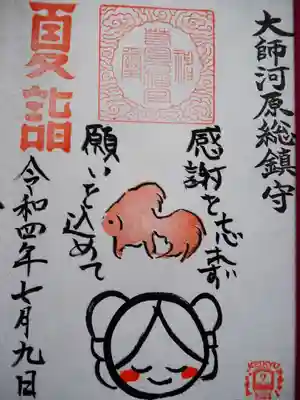 大師河原総鎮守
感謝を忘れず
願いを込めて
夏詣
令和四年七月九日
KEIKYU